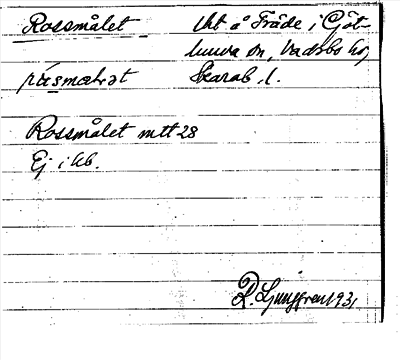 Rossmålet Urt å Fräde i Göt-
lunda sn, Vadsbo hd,
Skarab. l.
Rossmålet mtt 28
Ej i kb.
R. Ljunggren 1931